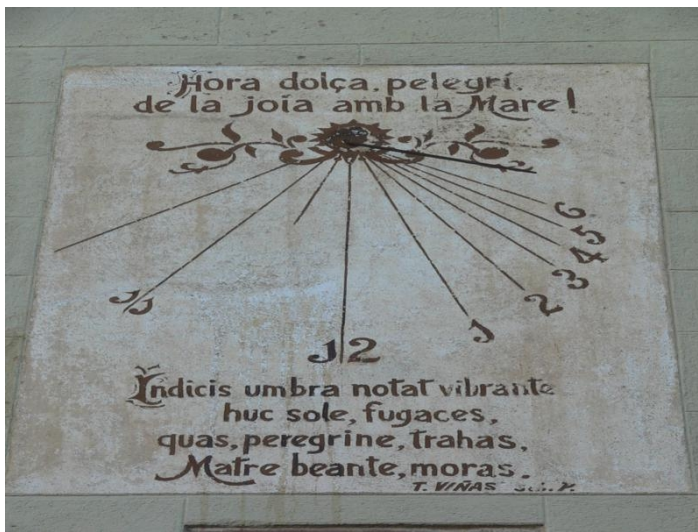 Hora dolça. pelegrí.
de la joía amb la Mare!
6
5
4
3
2
1
11
12
Indicis umbra notat vibrante
huc sole, fugaces,
quas, peregrine, trahas,
Matre beante, moras.
T. VIÑAS